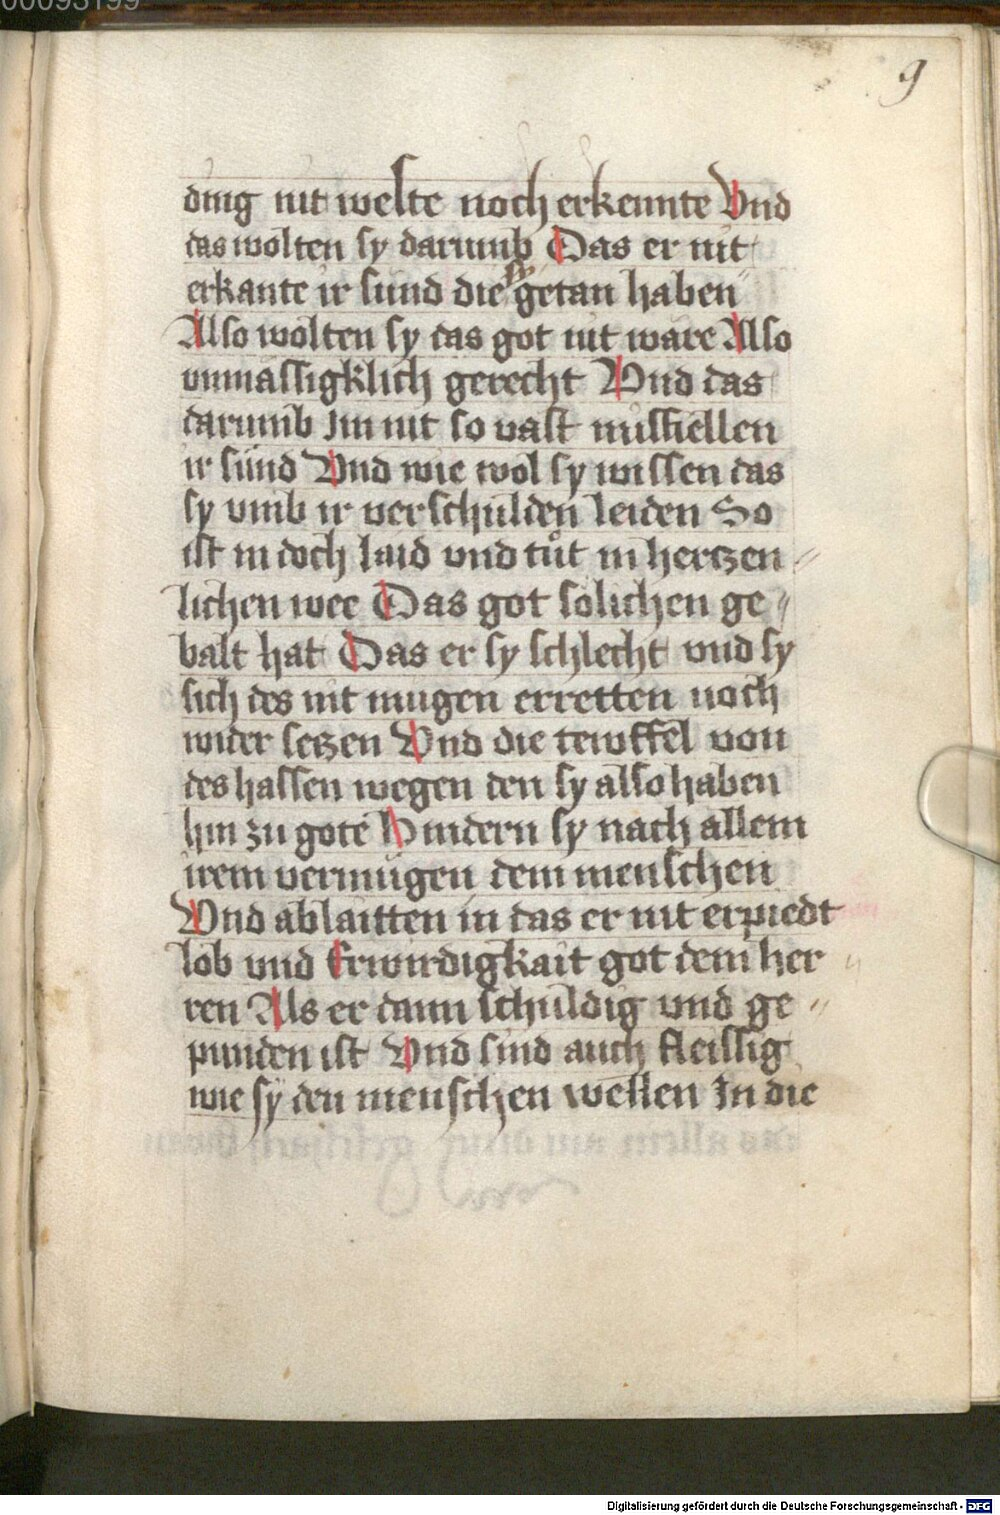 00093199
9
ding nit welte noch erkennte Vnd
das wolten sy darumb Das er nit
erkante ir sund die sy getan haben
Also wolten sy das got nit wäre Also
vnmässigklich gerecht Vnd das
darumb Im nit so vast missfiellen
ir sünd Vnd wie wol sy wissen das
sy vmb ir verschulden leiden So
ist in doch laid vnd tůt in hertzen
lichen wee Das got sölichen ge
balt hat Das er sy schlecht vnd sy
sich des nit mugen erretten noch
wider setzen Vnd die tewffel von
des hassen wegen den sy also haben
hin zu gote Hindern sy nach allem
irem vermügen dem menschen
Vnd ablaitten in das er nit erpiedt
lob vnd Erwirdigkait got dem her
ren Als er dann schuldig vnd ge
punden ist Vnd sind auch fleissig
wie sy den menschen wellen In die
Digitalisierung gefördert durch die Deutsche Forschungsgemeinschaft - DFG